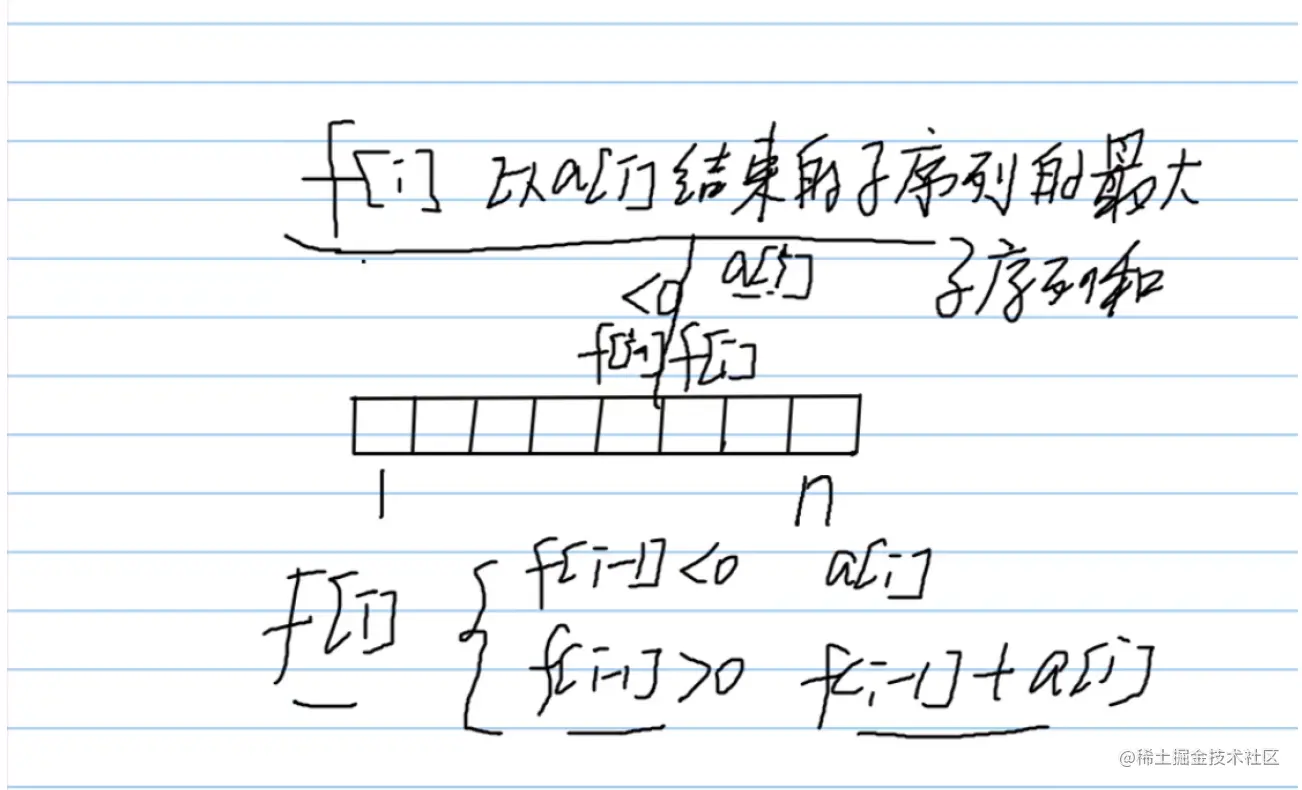 f[i] 以a[i]结束的子序列的最大
子序列和
<0 a[i]
f[i-1] f[i]
1 n
f[i] { f[i-1]<0 a[i]
f[i-1]>0 f[i-1]+a[i]
@稀土掘金技术社区